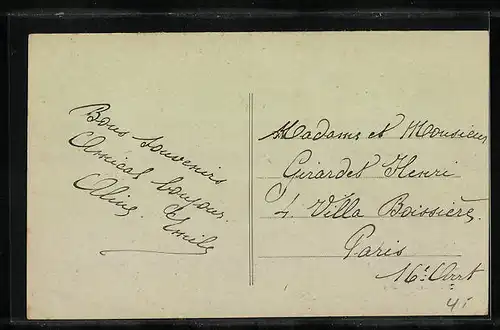 Bons souvenirs
Amical bonjour.
Aline. Emile
Madame et Monsieur
Girardet Henri
4. Villa Boissière.
Paris
16e Arrt